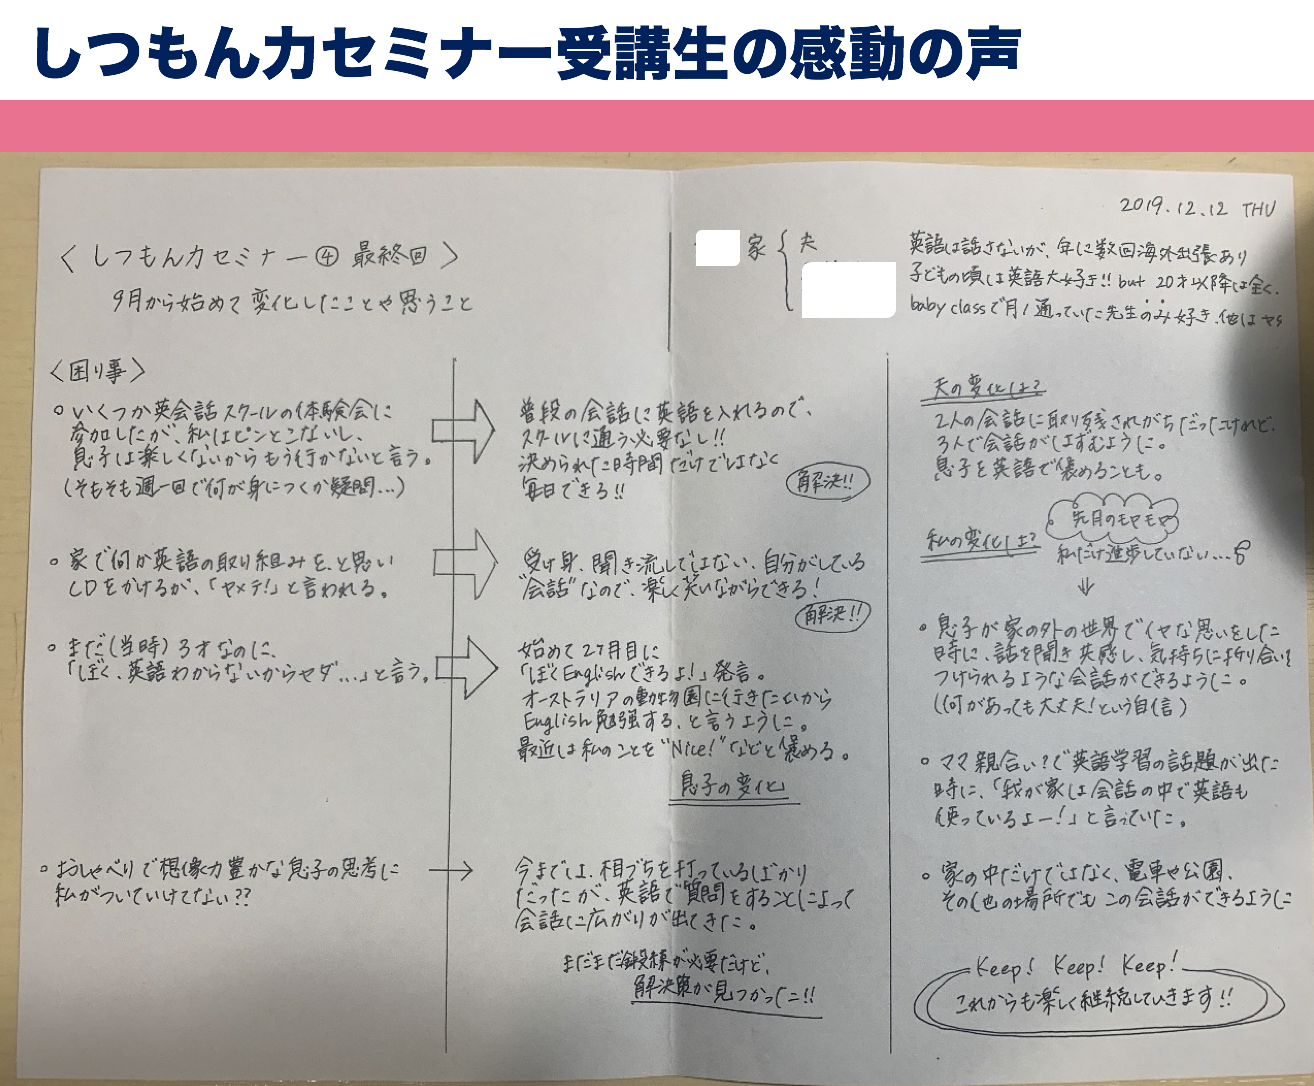 しつもん力セミナー受講生の感動の声
2019.12.12 THU
〈しつもん力セミナー④ 最終回〉
9月から始めて変化したことや思うこと
家 { 夫
英語は話さないが、年に数回海外出張あり
子どもの頃は英語大好き!! but 20才以降は全く、
baby classで月1通っていた先生のみ好き、他はヤダ
〈困り事〉
○ いくつか英会話スクールの体験会に
参加したが、私はピンとこないし、
息子は楽しくないからもう行かないと言う。
(そもそも週一回で何が身につくか疑問...)
普段の会話に英語を入れるので、
スクールに通う必要なし!!
決められた時間だけではなく
毎日できる!!
解決!!
○ 家で何か英語の取り組みを、と思い
CDをかけるが、「ヤメテ!」と言われる。
受け身、聞き流しではない、自分がしている
"会話"なので、楽しく笑いながらできる!
解決!!
○ まだ(当時)3才なのに、
「ぼく、英語わからないからヤダ...」と言う。
始めて2ヶ月目に
「ぼくEnglishできるよ!」発言。
オーストラリアの動物園に行きたいから
English勉強する、と言うように。
最近は私のことを"Nice!"などと褒める。
息子の変化
○ おしゃべりで想像力豊かな息子の思考に
私がついていけてない??
今までは、相づちを打っているばかり
だったが、英語で質問をすることによって
会話に広がりが出てきた。
まだまだ鍛練が必要だけど、
解決策が見つかった!!
夫の変化は?
2人の会話に取り残されがちだったけれど、
3人で会話がはずむように。
息子を英語で褒めることも。
私の変化は?
先月のモヤモヤ
私だけ進歩していない...
○ 息子が家の外の世界でイヤな思いをした
時に、話を聞き共感し、気持ちに折り合いを
つけられるような会話ができるように。
(何があっても大丈夫!という自信)
○ ママ親合い?で英語学習の話題が出た
時に、「我が家は会話の中で英語も
使っているよー!」と言っていた。
○ 家の中だけではなく、電車や公園、
その他の場所でもこの会話ができるように
Keep! Keep! Keep!
これからも楽しく継続していきます!!